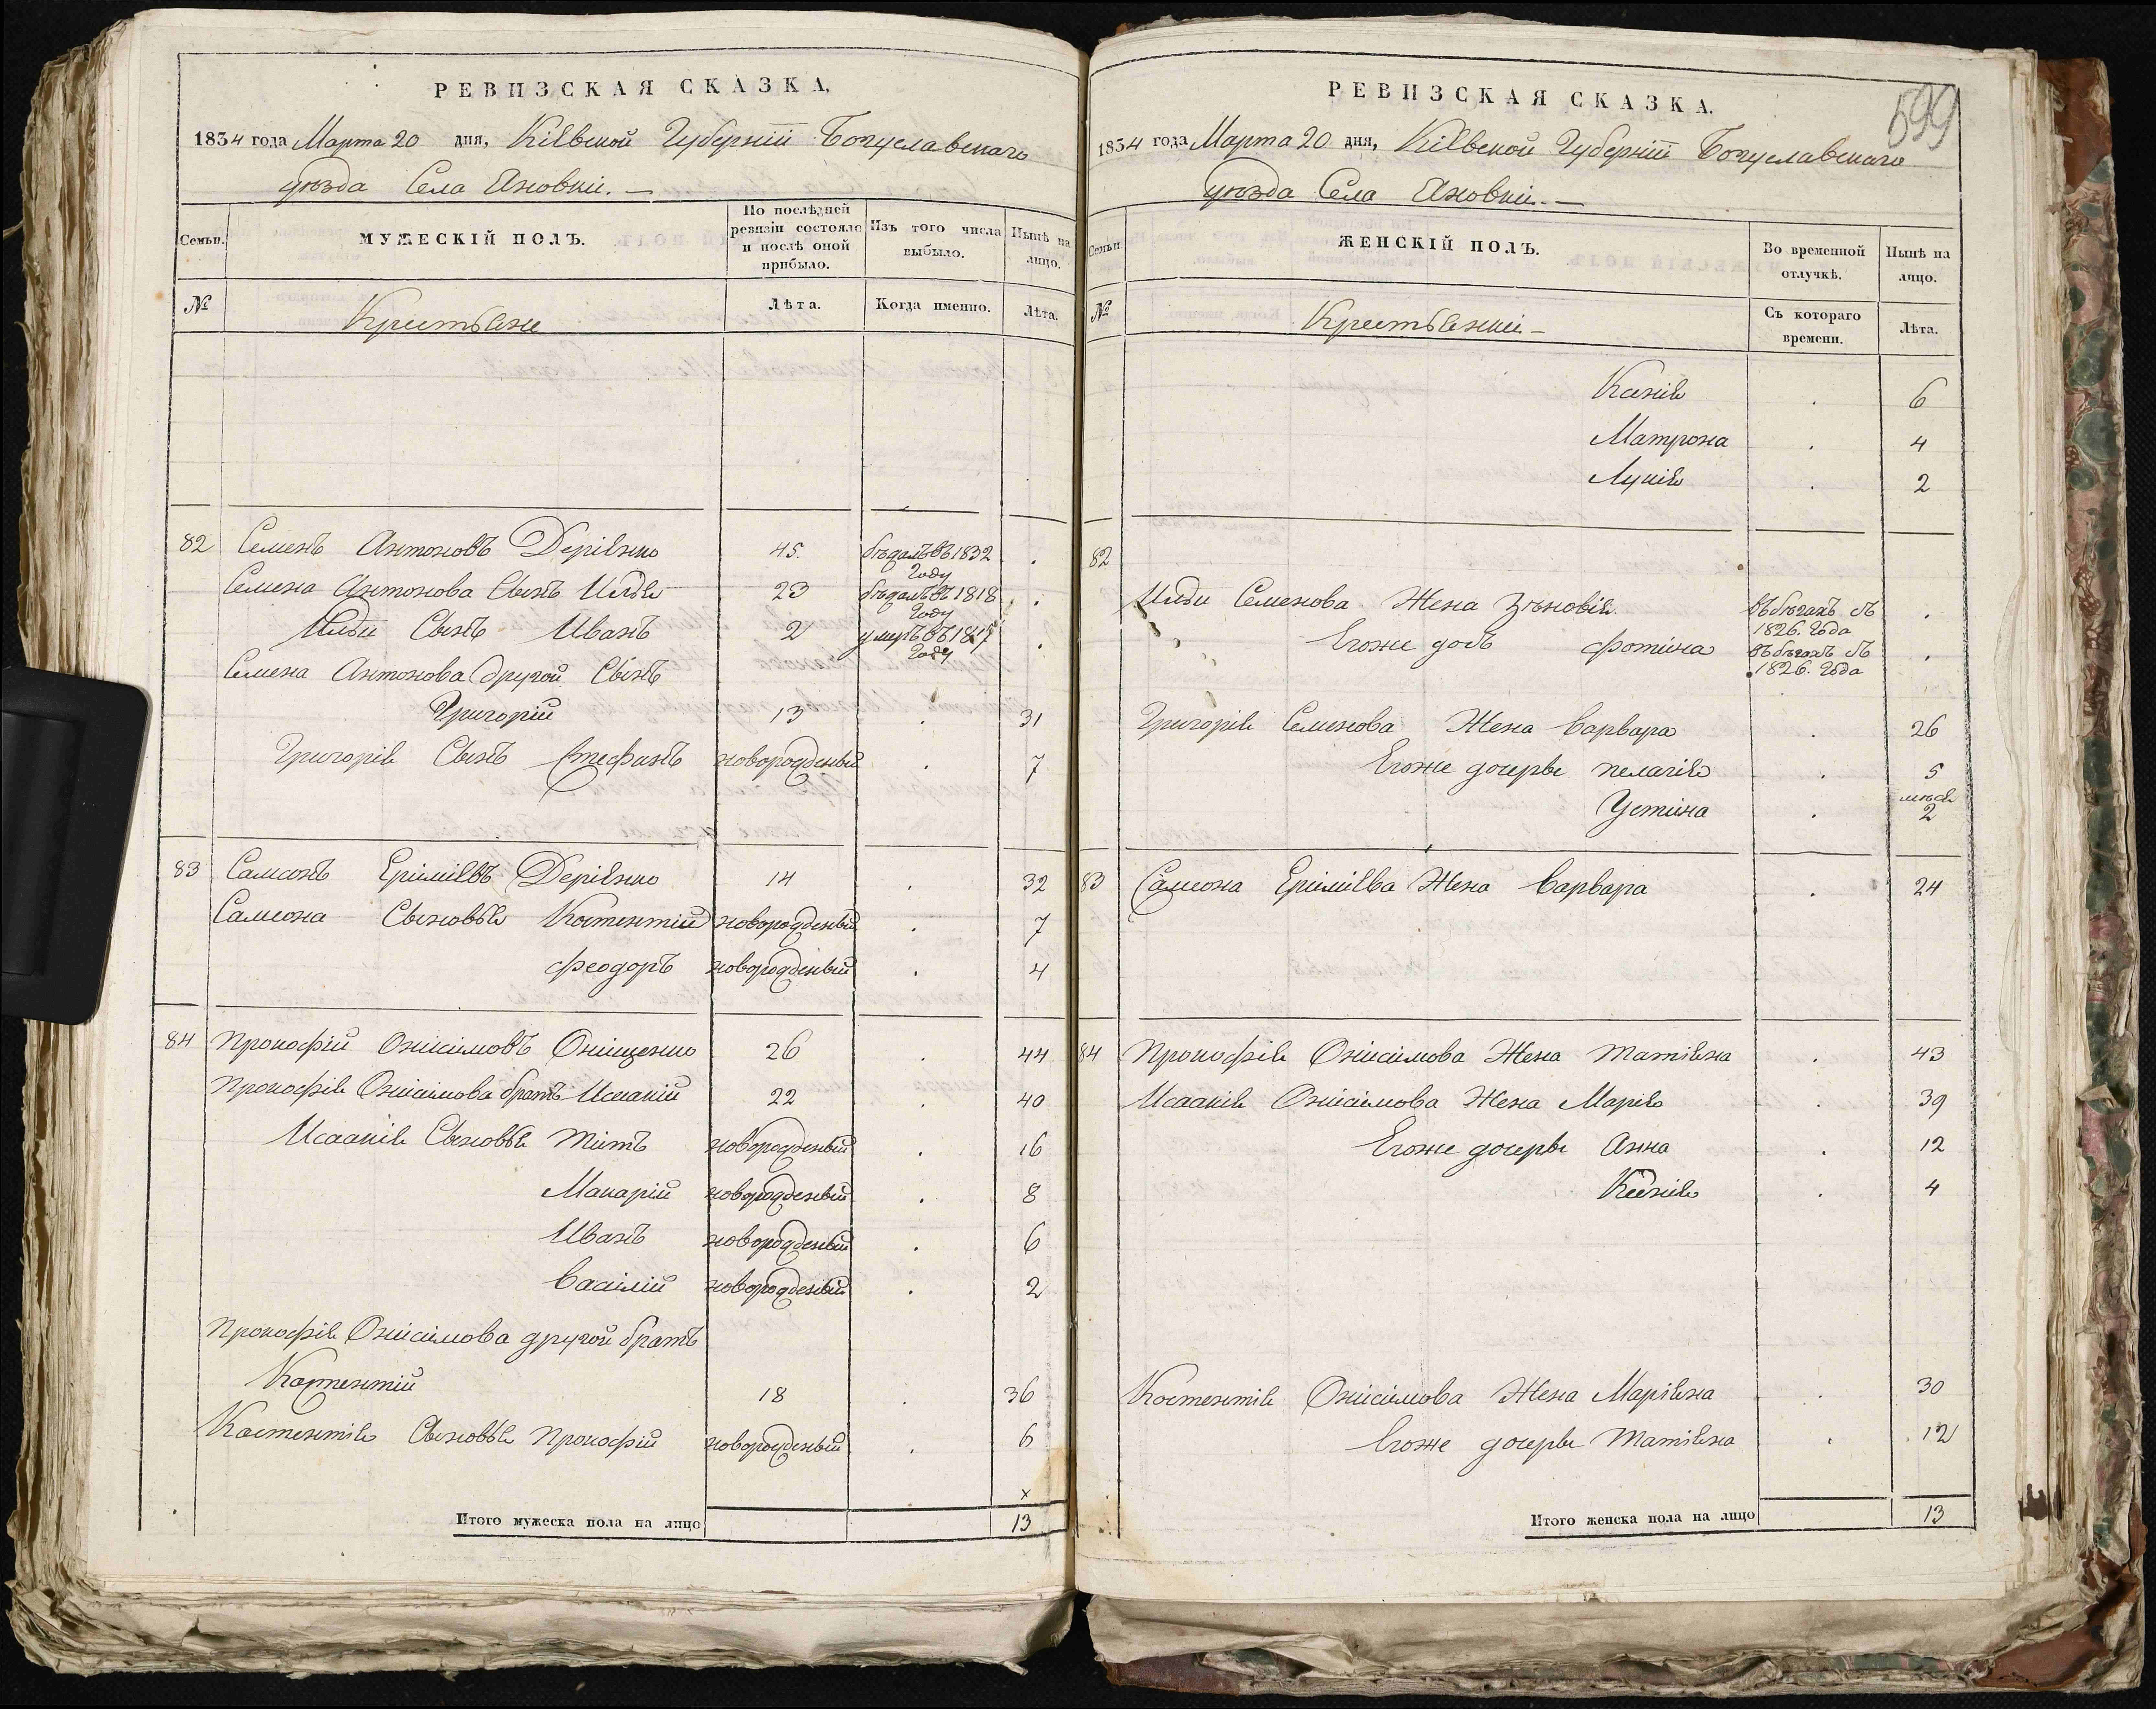 РЕВИЗСКАЯ СКАЗКА.
1834 года Марта 20 дня, Кіевской Губерніи Богуславскаго
уѣзда Села Яновки. —
Семьи. МУЖЕСКІЙ ПОЛЪ. По послѣдней ревизіи состояло и послѣ оной прибыло. Изъ того числа выбыло. Нынѣ на лицо.
№ Крестьяне Лѣта. Когда именно. Лѣта.
82 Семенъ Антоновъ Деріенко 45. бѣдалъ въ 1832 Году .
Семена Антонова Сынъ Илья 23 бѣдалъ въ 1818 Году .
Ильи Сынъ Иванъ 2 умеръ въ Году .
Семена Антонова другой Сынъ
Григорій 13 . 31
Григорія Сынъ Стефанъ новорожденый . 7
83 Самсонъ Еріміевъ Деріенко 14 . 32
Самсона Сыновья Костентій новорожденый . 7
Феодоръ новорожденый . 4
84 Прокофій Онісімовъ Оніщенко 26 . 44
Прокофія Онісімова братъ Исакій 22 . 40
Исаакія Сыновья Тітъ новорожденый . 16
Макарій новорожденый . 8
Иванъ новорожденый . 6
Василій новорожденый . 2
Прокофія Онісімова другой братъ
Костентій 18 . 36
Костентія Сыновья Прокофій новорожденый . 6
x
Итого мужеска пола на лицо 13
599
РЕВИЗСКАЯ СКАЗКА.
1834 года Марта 20 дня, Кіевской Губерніи Богуславскаго
уѣзда Села Яновки. —
Семьи. ЖЕНСКІЙ ПОЛЪ. Во временной отлучкѣ. Нынѣ на лицо.
№ Крестьянки — Съ котораго времени. Лѣта.
Ксенія . 6
Матрона . 4
Лукія . 2
82
Ильи Семенова Жена Зѣновія въ бѣгахъ съ 1826. Года .
Егоже дочь Фотіна въ бѣгахъ съ 1826. Года .
Григорія Семенова Жена Варвара . 26
Егоже дочеры Пелагія . 5
Устина . мѣся 2
83 Самсона Еріміева Жена Варвара . 24
84 Прокофія Онісімова Жена Татіяна . 43
Исаакія Онісімова Жена Марія . 39
Егоже дочеры Анна . 12
Ксенія . 4
Костентія Онісімова Жена Маріяна . 30
Егоже дочеры Татіяна . 12
Итого женска пола на лицо 13